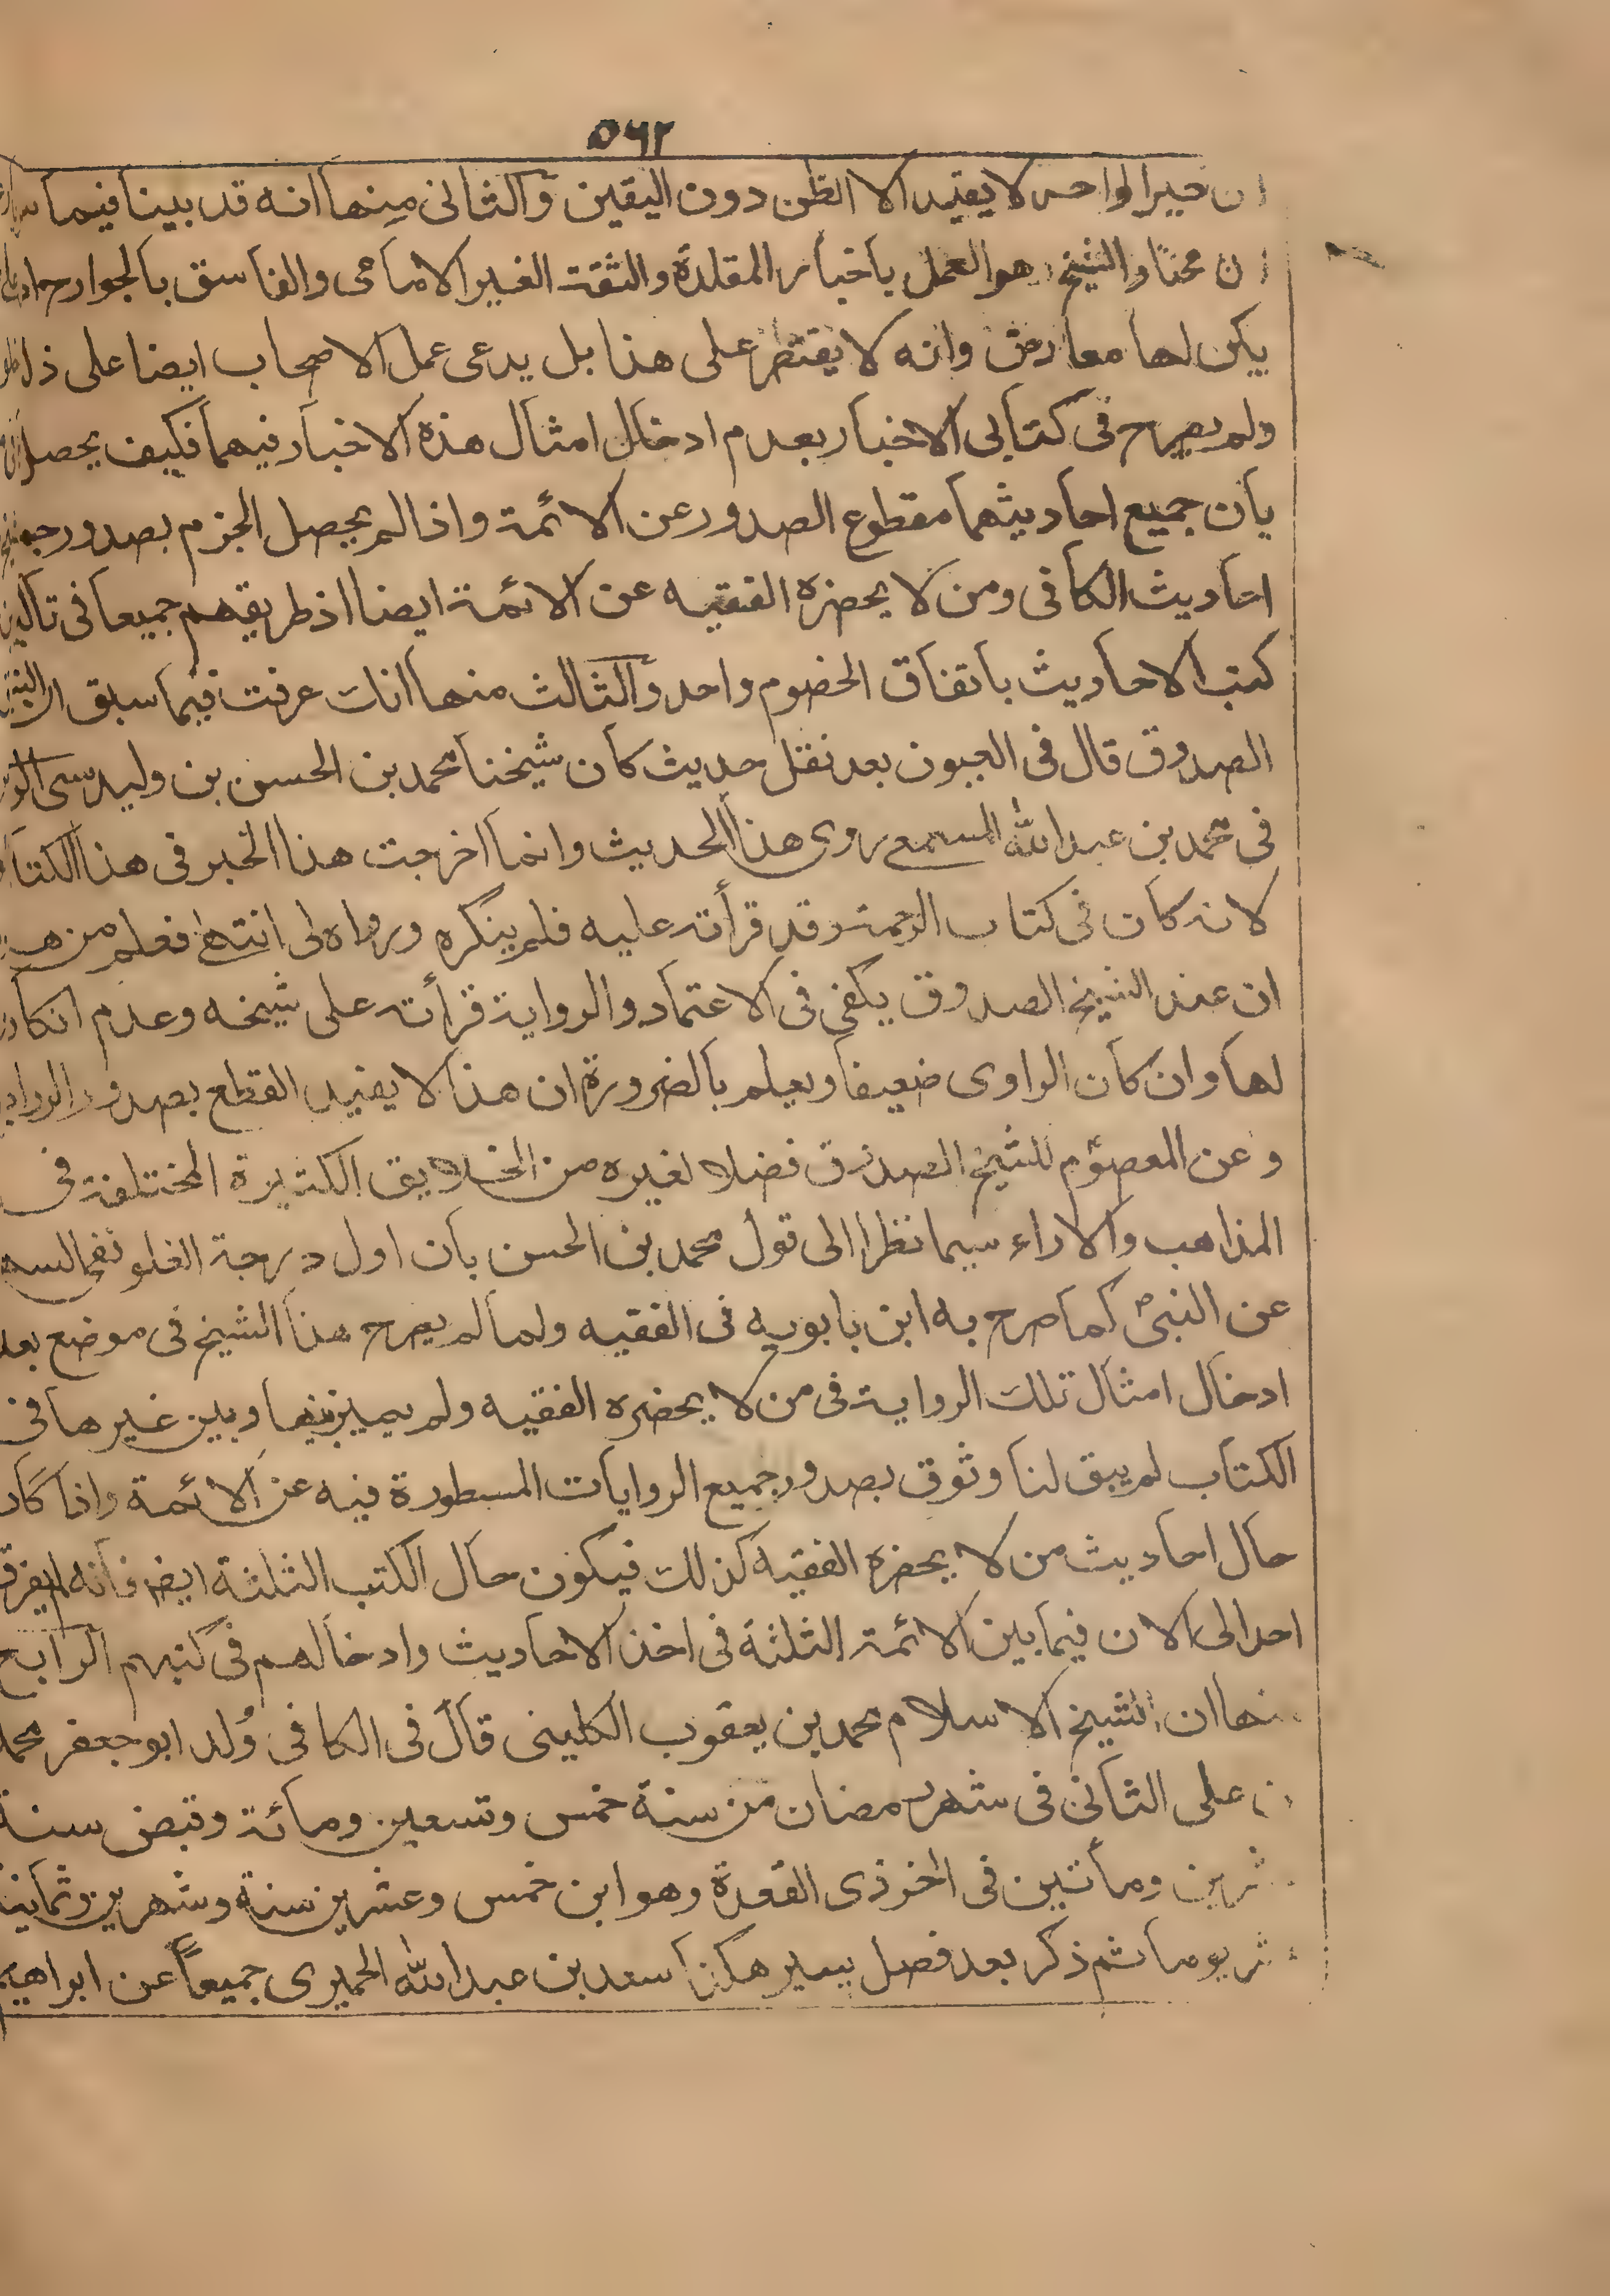 ٥٦٢
ان خبر الواحد لا يفيد الا الظن دون اليقين والثانى منها انه قد بينا فيما
ان مختار الشيخ هو العمل باخبار المقلدة والثقة الغير الامامى والفاسق بالجوارح اذا لم
يكن لها معارض وانه لا يقتصر على هذا بل يدعى عمل الاصحاب ايضا على ذلك
ولم يصرح فى كتابى الاخبار بعدم ادخال امثال هذه الاخبار فيهما فكيف يحصل
بان جميع احاديثهما مقطوع الصدور عن الائمة واذا لم يحصل الجزم بصدور جميع
احاديث الكافى ومن لا يحضره الفقيه عن الائمة ايضا اذ طريقهم جميعا فى تاليف
كتب الاحاديث باتفاق الخصوم واحد والثالث منها انك عرفت فيما سبق ان الشيخ
الصدوق قال فى العيون بعد نقل حديث كان شيخنا محمد بن الحسن بن وليد سىء الراى
فى محمد بن عبد الله المسمعى روى هذا الحديث وانما اخرجت هذا الخبر فى هذا الكتاب
لانه كان فى كتاب الرحمة وقد قرأته عليه فلم ينكره ورواه لى انتهى فعلم من هذا
ان عند الشيخ الصدوق يكفى فى الاعتماد والرواية قرأته على شيخه وعدم انكاره
لها وان كان الراوى ضعيفا ويعلم بالضرورة ان هذا لا يفيد القطع بصدور الرواية
و عن المعصوم للشيخ الصدوق فضلا لغيره من الخلايق الكثيرة المختلفة فى
المذاهب والاراء سيما نظرا الى قول محمد بن الحسن بان اول درجة الغلو نفى السهو
عن النبىص كما صرح به ابن بابويه فى الفقيه ولما لم يصرح هذا الشيخ فى موضع بعدم
ادخال امثال تلك الرواية فى من لا يحضره الفقيه ولم يميز بينها وبين غيرها فى
الكتاب لم يبق لنا وثوق بصدور جميع الروايات المسطورة فيه عن الائمة واذا كان
حال احاديث من لا يحضره الفقيه كذلك فيكون حال الكتب الثلثة ايض فانه لم يفرق
احد الى الان فيما بين الائمة الثلثة فى اخذ الاحاديث وادخالهم فى كتبهم الرابع
منها ان الشيخ الاسلام محمد بن يعقوب الكلينى قال فى الكافى وُلد ابو جعفر محمد
بن على الثانى فى شهر رمضان من سنة خمس وتسعين ومائة وقبض سنة
عشرين ومأتين فى اخر ذى القعدة وهو ابن خمس وعشرين سنة وشهرين وثمانية
عشر يوما ثم ذكر بعد فصل يسير هكذا سعد بن عبد الله الحميرى جميعاً عن ابراهيم